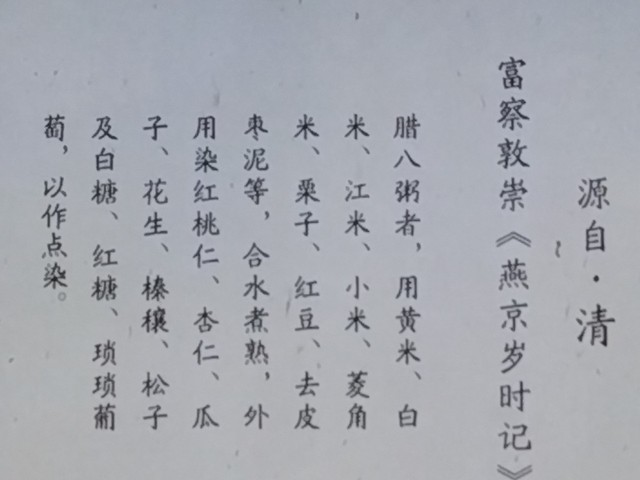 源自·清
富察敦崇《燕京岁时记》
腊八粥者，用黄米、白
米、江米、小米、菱角
米、栗子、红豆、去皮
枣泥等，合水煮熟，外
用染红桃仁、杏仁、瓜
子、花生、榛穰、松子
及白糖、红糖、琐琐葡
萄，以作点染。